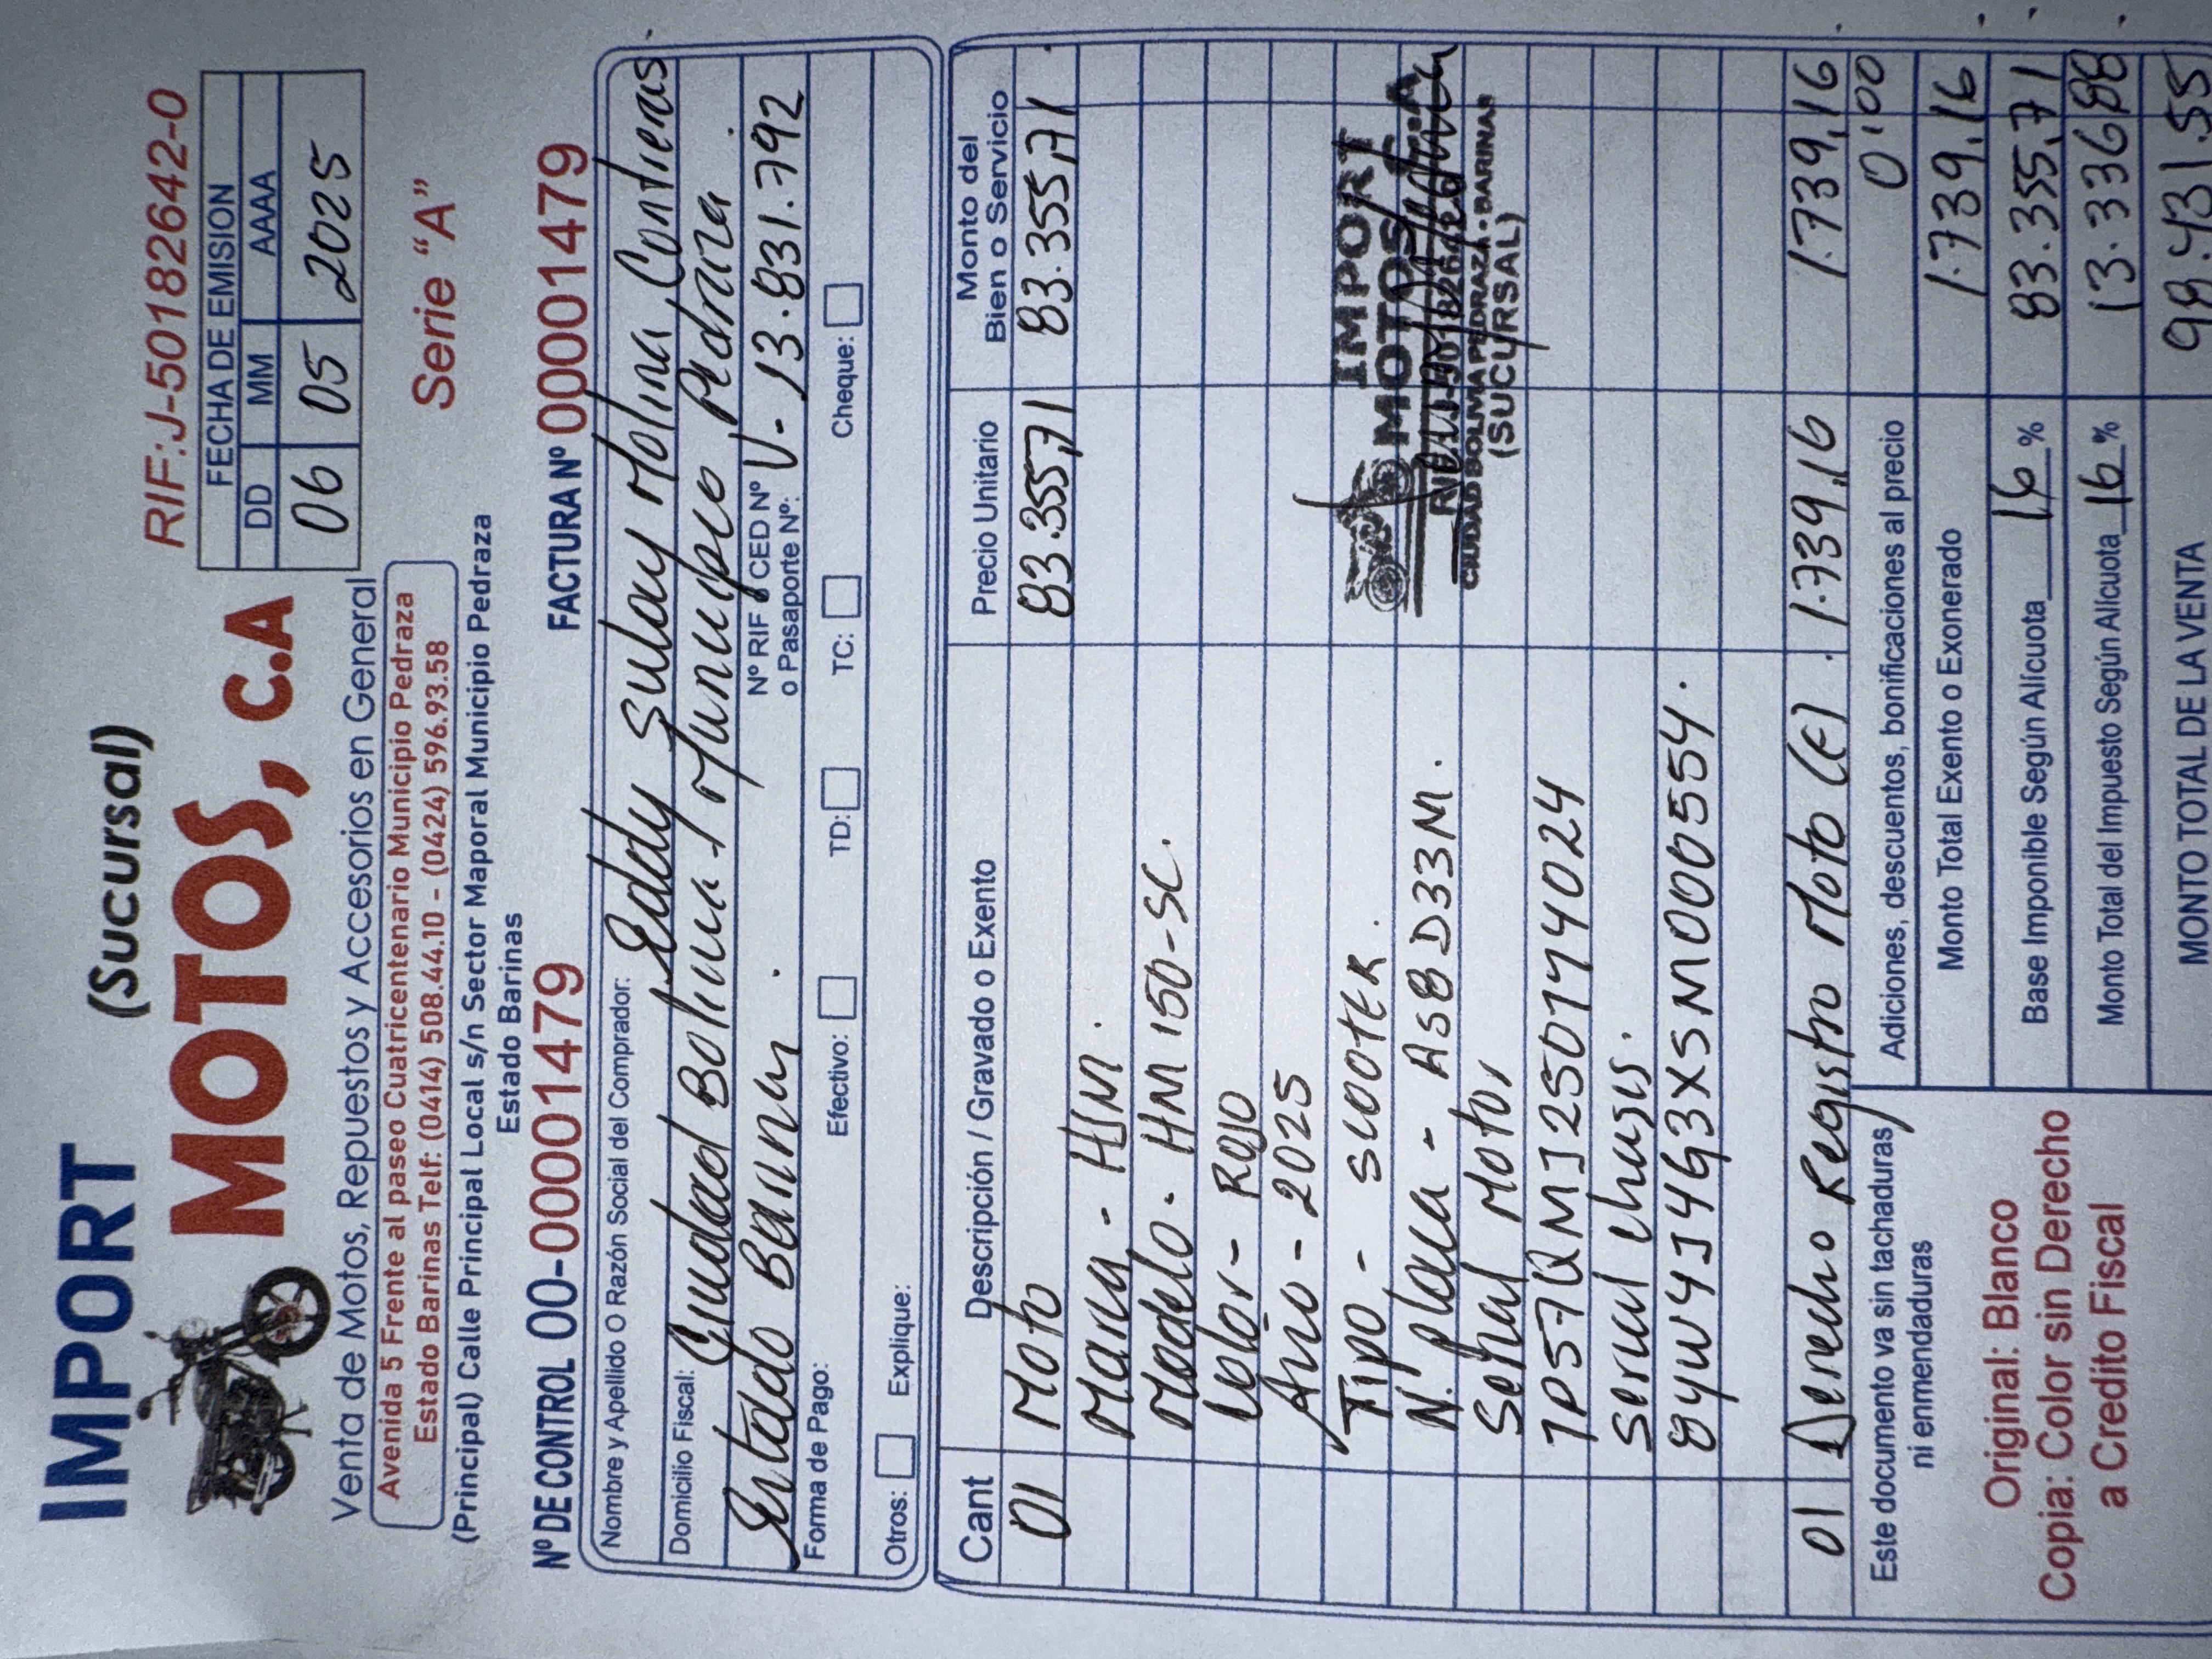 IMPORT (Sucursal)
MOTOS, C.A
RIF: J-50182642-0
FECHA DE EMISION
DD MM AAAA
06 05 2025
Venta de Motos, Repuestos y Accesorios en General
Avenida 5 Frente al paseo Cuatricentenario Municipio Pedraza
Estado Barinas Telf: (0414) 508.44.10 - (0424) 596.93.58
(Principal) Calle Principal Local s/n Sector Maporal Municipio Pedraza
Estado Barinas
Serie "A"
Nº DE CONTROL 00-00001479 FACTURA Nº 00001479
Nombre y Apellido O Razón Social del Comprador: Eddy Sulay Molina Contreras
Domicilio Fiscal: Ciudad Bolivia Munipio Pedraza
Estado Barinas. Nº RIF ó CED Nº o Pasaporte Nº: V-13.831.792
Forma de Pago: Efectivo: TD: TC: Cheque:
Otros: Explique:
Cant Descripción / Gravado o Exento Precio Unitario Monto del Bien o Servicio
01 Moto 83.355,71 83.355,71
Marca - HJM.
Modelo. HM 150-SC.
Color - Rojo
Año - 2025
Tipo - SCOOTER.
N. placa - AS8D33M.
Serial Motor
1P57QMJ25017440 24
Serial chasis.
8YWYJ4G3XSM000554.
IMPORT
MOTOS, C.A
CIUDAD BOLIVIA PEDRAZA - BARINAS
(SUCURSAL)
01 Derecho Registro Moto (E). 1.739,16 1.739,16
Este documento va sin tachaduras ni enmendaduras
Adiciones, descuentos, bonificaciones al precio 0,00
Monto Total Exento o Exonerado 1.739,16
Base Imponible Según Alícuota 16 % 83.355,71
Monto Total del Impuesto Según Alícuota 16 % 13.336,88
MONTO TOTAL DE LA VENTA 98.431.55
Original: Blanco
Copia: Color sin Derecho
a Credito Fiscal